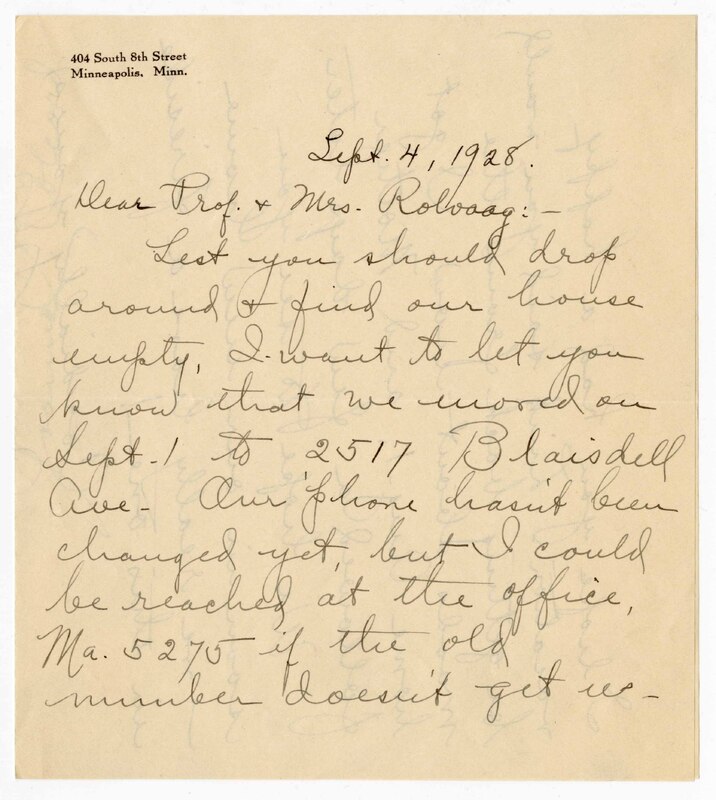 404 South 8th Street
Minneapolis, Minn.
Sept. 4, 1928.
Dear Prof. & Mrs. Rolvaag: -
Lest you should drop
around & find our house
empty, I want to let you
know that we moved on
Sept. 1 to 2517 Blaisdell
Ave - Our 'phone hasn't been
changed yet, but I could
be reached at the office,
Ma. 5275 if the old
number doesn't get us -